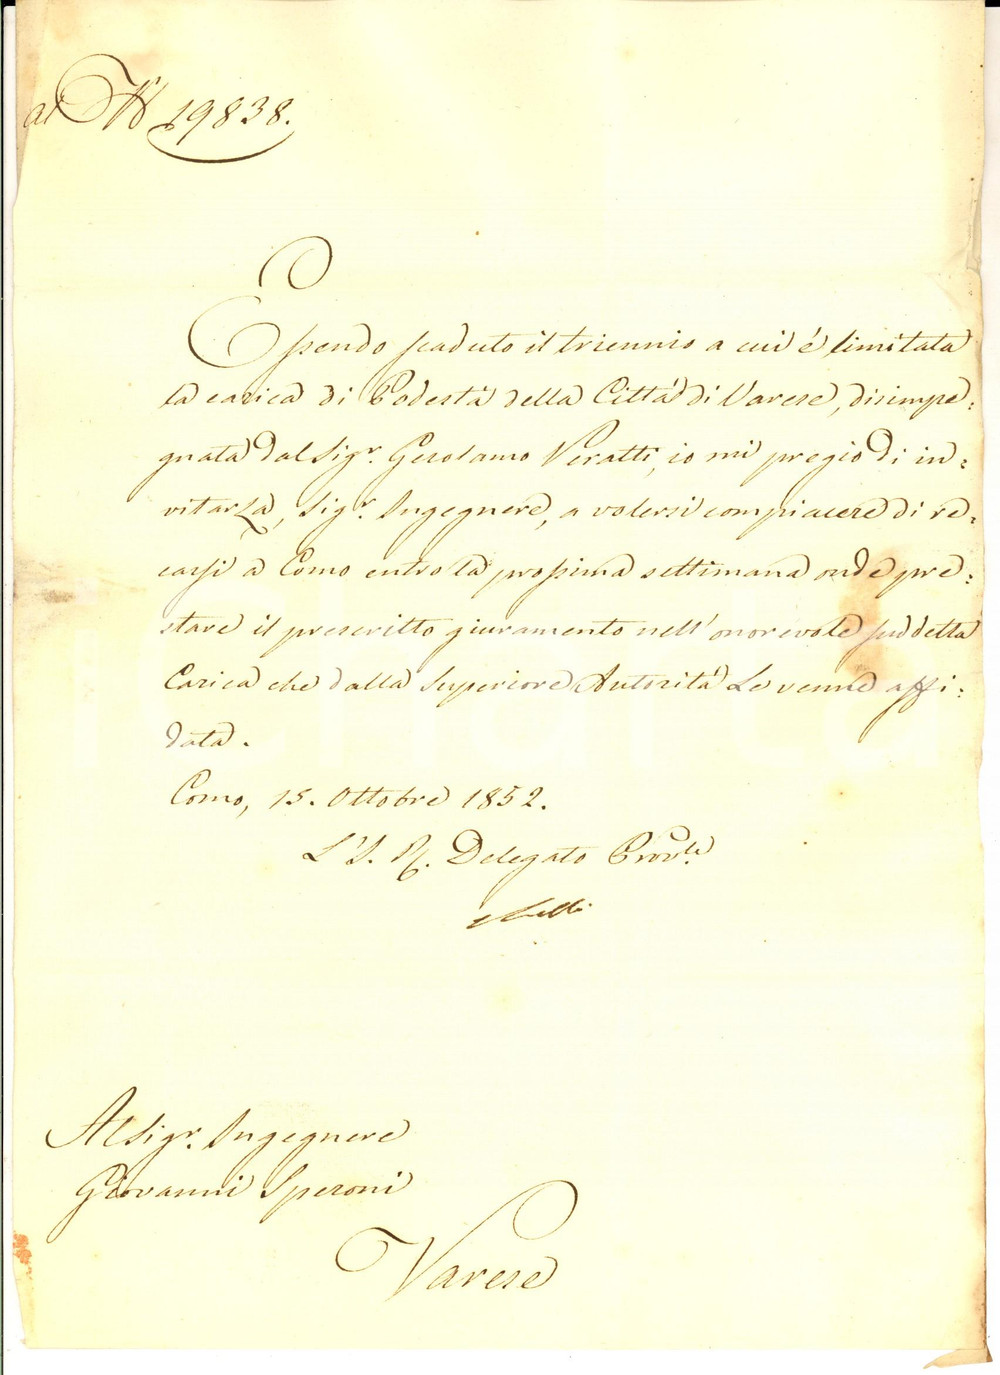 al N.º 19838.
Essendo scaduto il triennio a cui é limitata
la carica di Podestà della Città di Varese, disimpe=
gnata dal Sigr. Gerolamo Veratti, io mi pregio di in=
vitarLa, Sigr. Ingegnere, a volersi compiacere di re=
carsi a Como entro la prossima settimana onde pre=
stare il prescritto giuramento nell'onorevole suddetta
Carica che dalla Superiore Autorità Le venne affi=
data.
Como, 15. Ottobre 1852.
L'I. R. Delegato Provle.
Al Sigr. Ingegnere
Giovanni Speroni
Varese